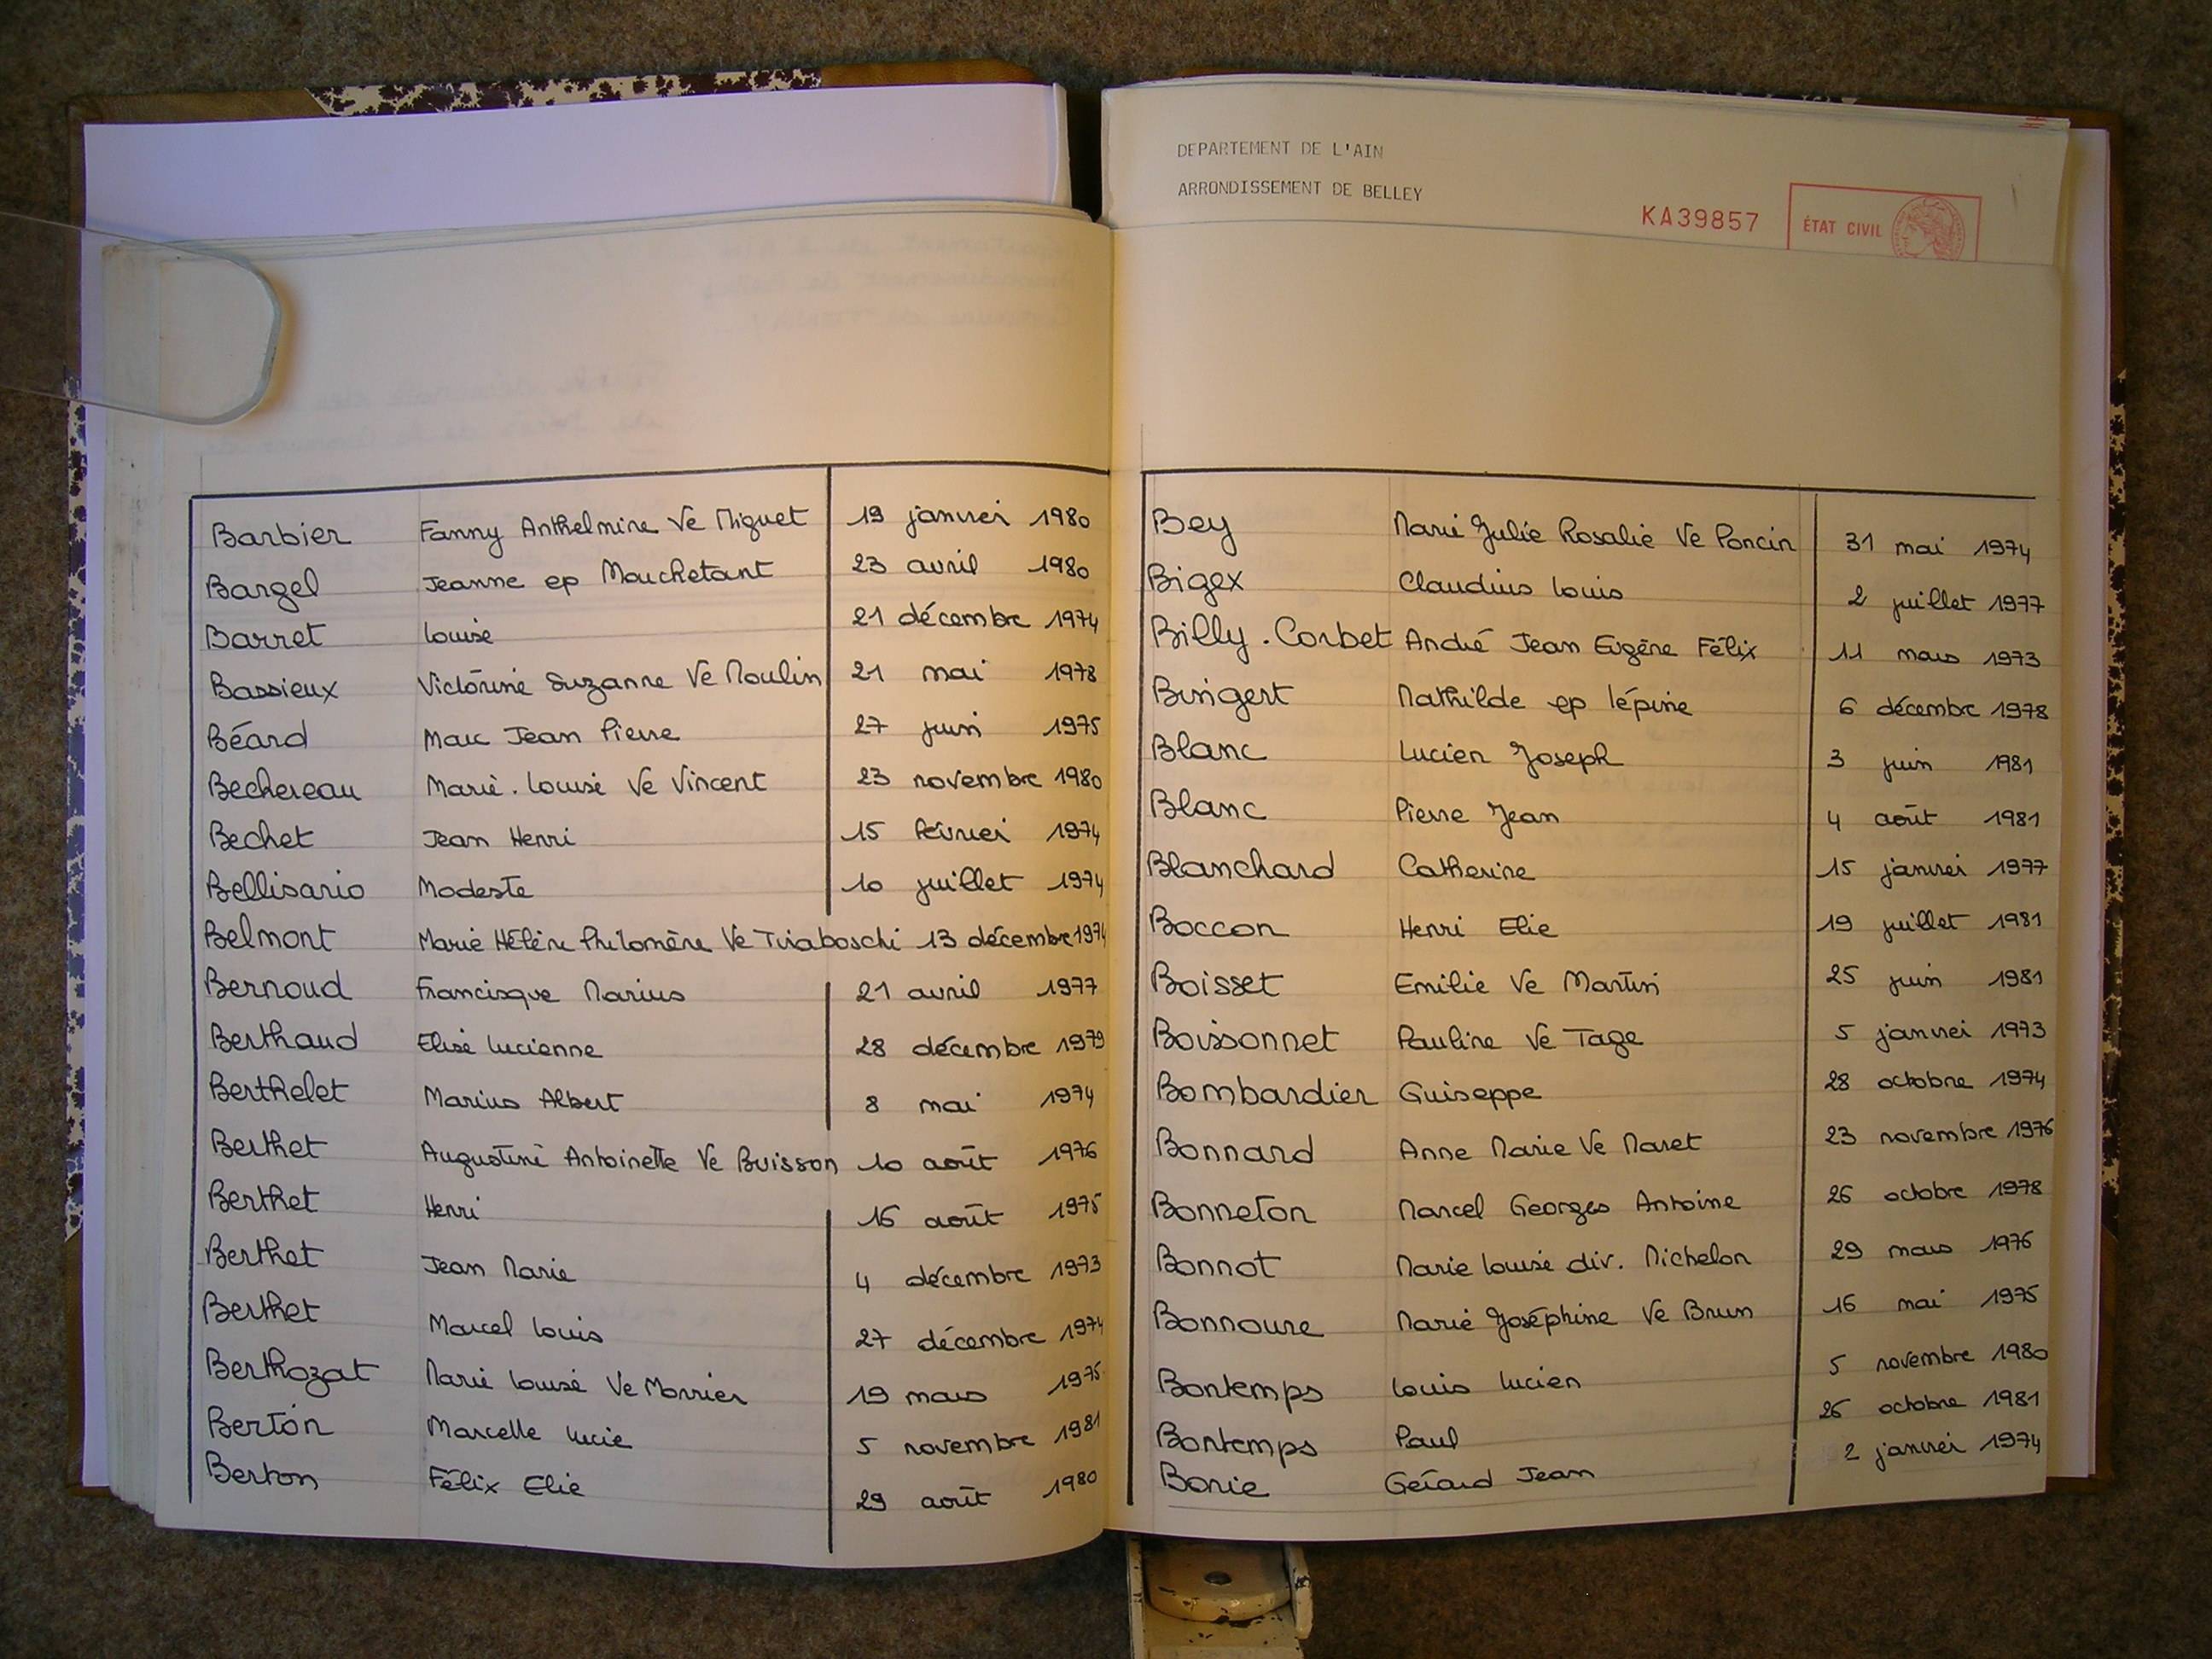 Barbier Fanny Anthelmine Ve Miguet 19 janvier 1980
Bargel Jeanne ep Mouchetant 23 avril 1980
Barret Louise 21 décembre 1974
Bassieux Victorine Suzanne Ve Moulin 21 mai 1978
Béard Marc Jean Pierre 27 juin 1975
Bechereau Marie. Louise Ve Vincent 23 novembre 1980
Bechet Jean Henri 15 février 1974
Bellisario Modeste 10 juillet 1974
Belmont Marie Hélène Philomène Ve Tiraboschi 13 décembre 1974
Bernoud Francisque Marius 21 avril 1977
Berthaud Elise Lucienne 28 décembre 1979
Berthelet Marius Albert 8 mai 1974
Berthet Augustine Antoinette Ve Buisson 10 août 1976
Berthet Henri 16 août 1975
Berthet Jean Marie 4 décembre 1973
Berthet Marcel Louis 27 décembre 1974
Berthozat Marie Louise Ve Monnier 19 mars 1975
Berton Marcelle Lucie 5 novembre 1981
Berton Félix Elie 29 août 1980
DEPARTEMENT DE L'AIN
ARRONDISSEMENT DE BELLEY
KA39857 ÉTAT CIVIL
Bey Marie Julie Rosalie Ve Poncin 31 mai 1974
Bigex Claudius Louis 2 juillet 1977
Billy. Corbet André Jean Eugène Félix 11 mars 1973
Bingert Mathilde ep Lépine 6 décembre 1978
Blanc Lucien Joseph 3 juin 1981
Blanc Pierre Jean 4 août 1981
Blanchard Catherine 15 janvier 1977
Boccon Henri Elie 19 juillet 1981
Boisset Emilie Ve Martin 25 juin 1981
Boissonnet Pauline Ve Tage 5 janvier 1973
Bombardier Guiseppe 28 octobre 1974
Bonnard Anne Marie Ve Maret 23 novembre 1976
Bonneton Marcel Georges Antoine 26 octobre 1978
Bonnot Marie Louise div. Michelon 29 mars 1976
Bonnoure Marie Joséphine Ve Brun 16 mai 1975
Bontemps Louis Lucien 5 novembre 1980
Bontemps Paul 26 octobre 1981
Borie Gérard Jean 2 janvier 1974